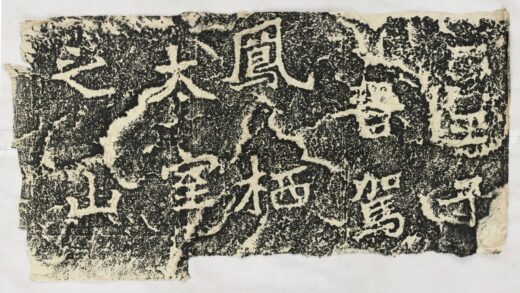 王子
晉駕
鳳栖
太室
之山